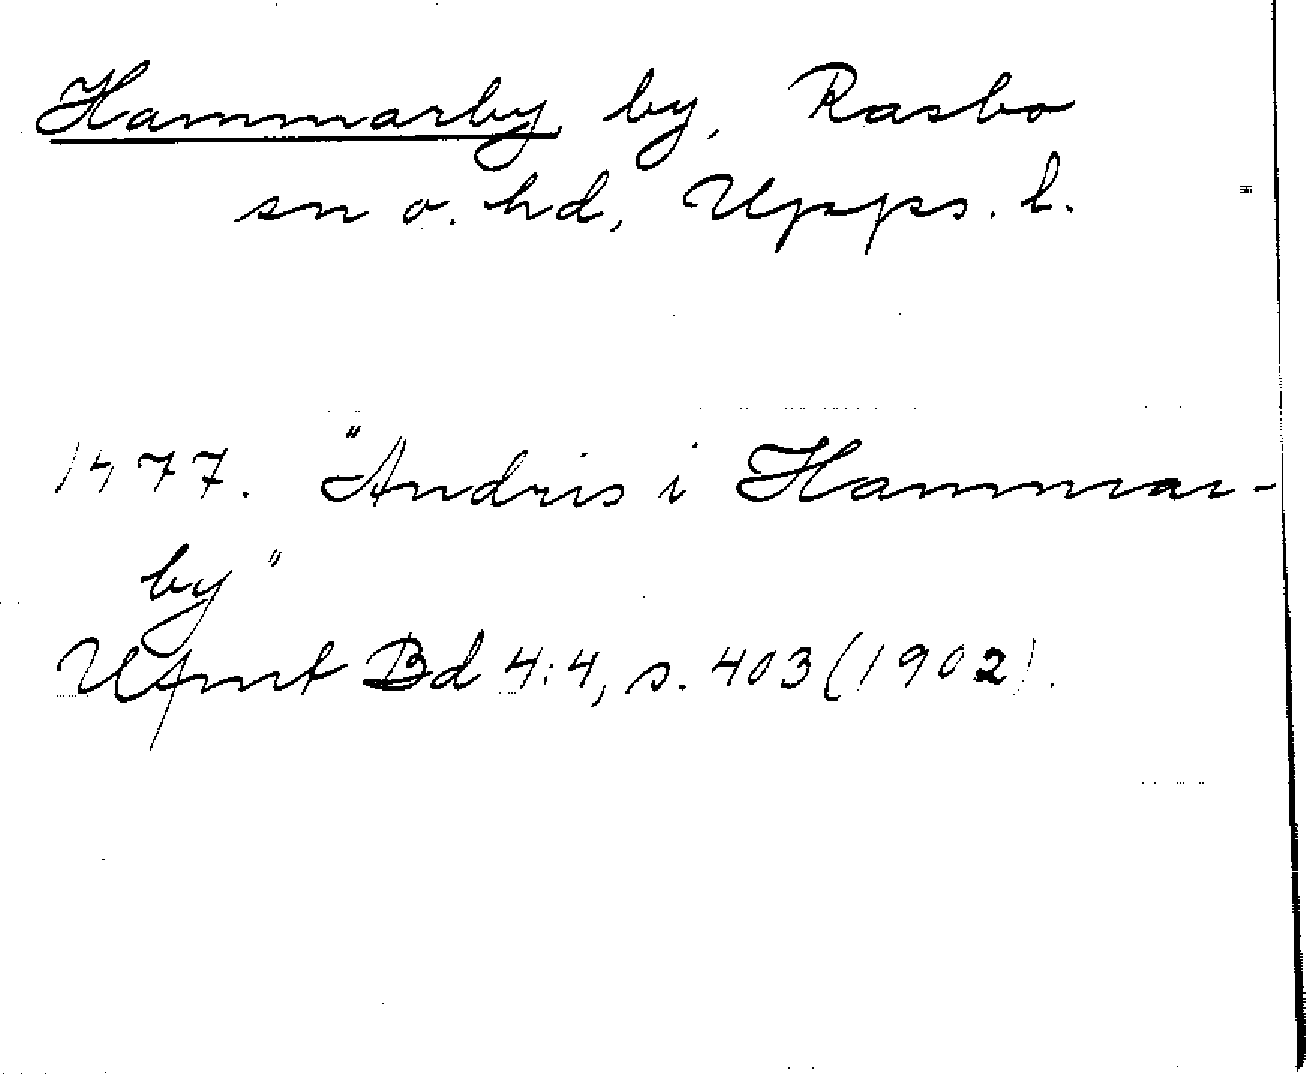 Hammarby by, Rasbo
sn o. hd, Upps. l.
1477. "Andris i Hammar-
by"
Ufmt Bd 4:4, s. 403 (1902).